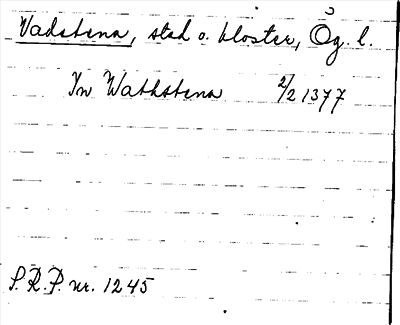 Vadstena, stad o. kloster, Ög. l.
In Wathstena 2/2 1377
S.R.P. nr. 1245